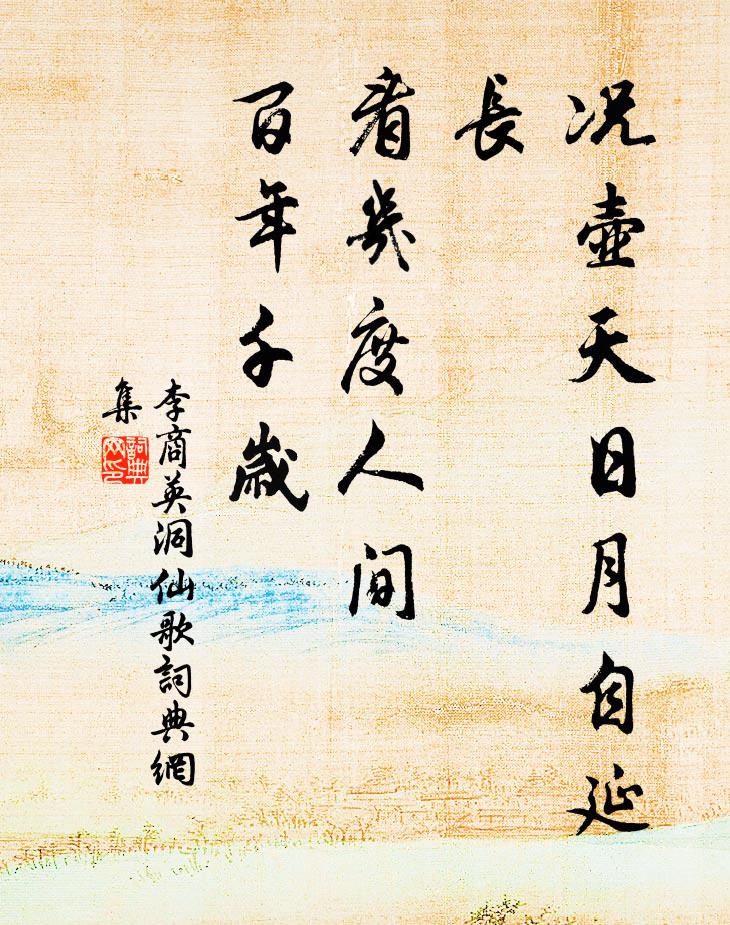 况壺天日月自延
長
看幾度人間
百年千歲
李商英洞仙歌詞典網
集
詞典
网印